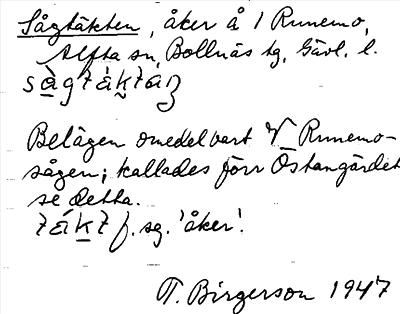 Sågtäkten, åker å 1 Runemo,
Alfta sn, Bollnäs tg, Gävl. l.
sàgtäktän
Belägen omedelbart V Runemo-
sågen; kallades förr Östangärdet
se detta.
täkt f. sg. 'åker'.
T. Birgerson 1947